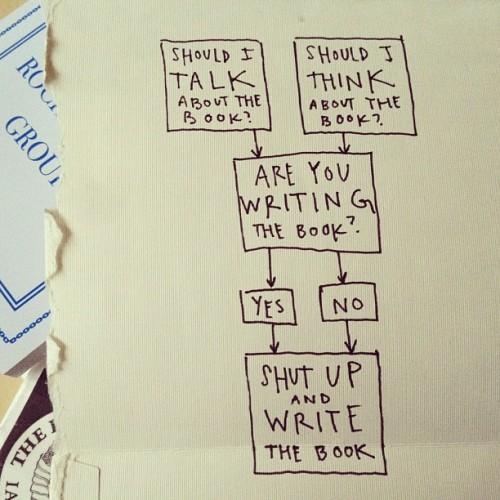 SHOULD I
TALK
ABOUT THE
BOOK?
SHOULD I
THINK
ABOUT THE
BOOK?
ARE YOU
WRITING
THE BOOK?
YES
NO
SHUT UP
AND
WRITE
THE BOOK
GROUP
THE